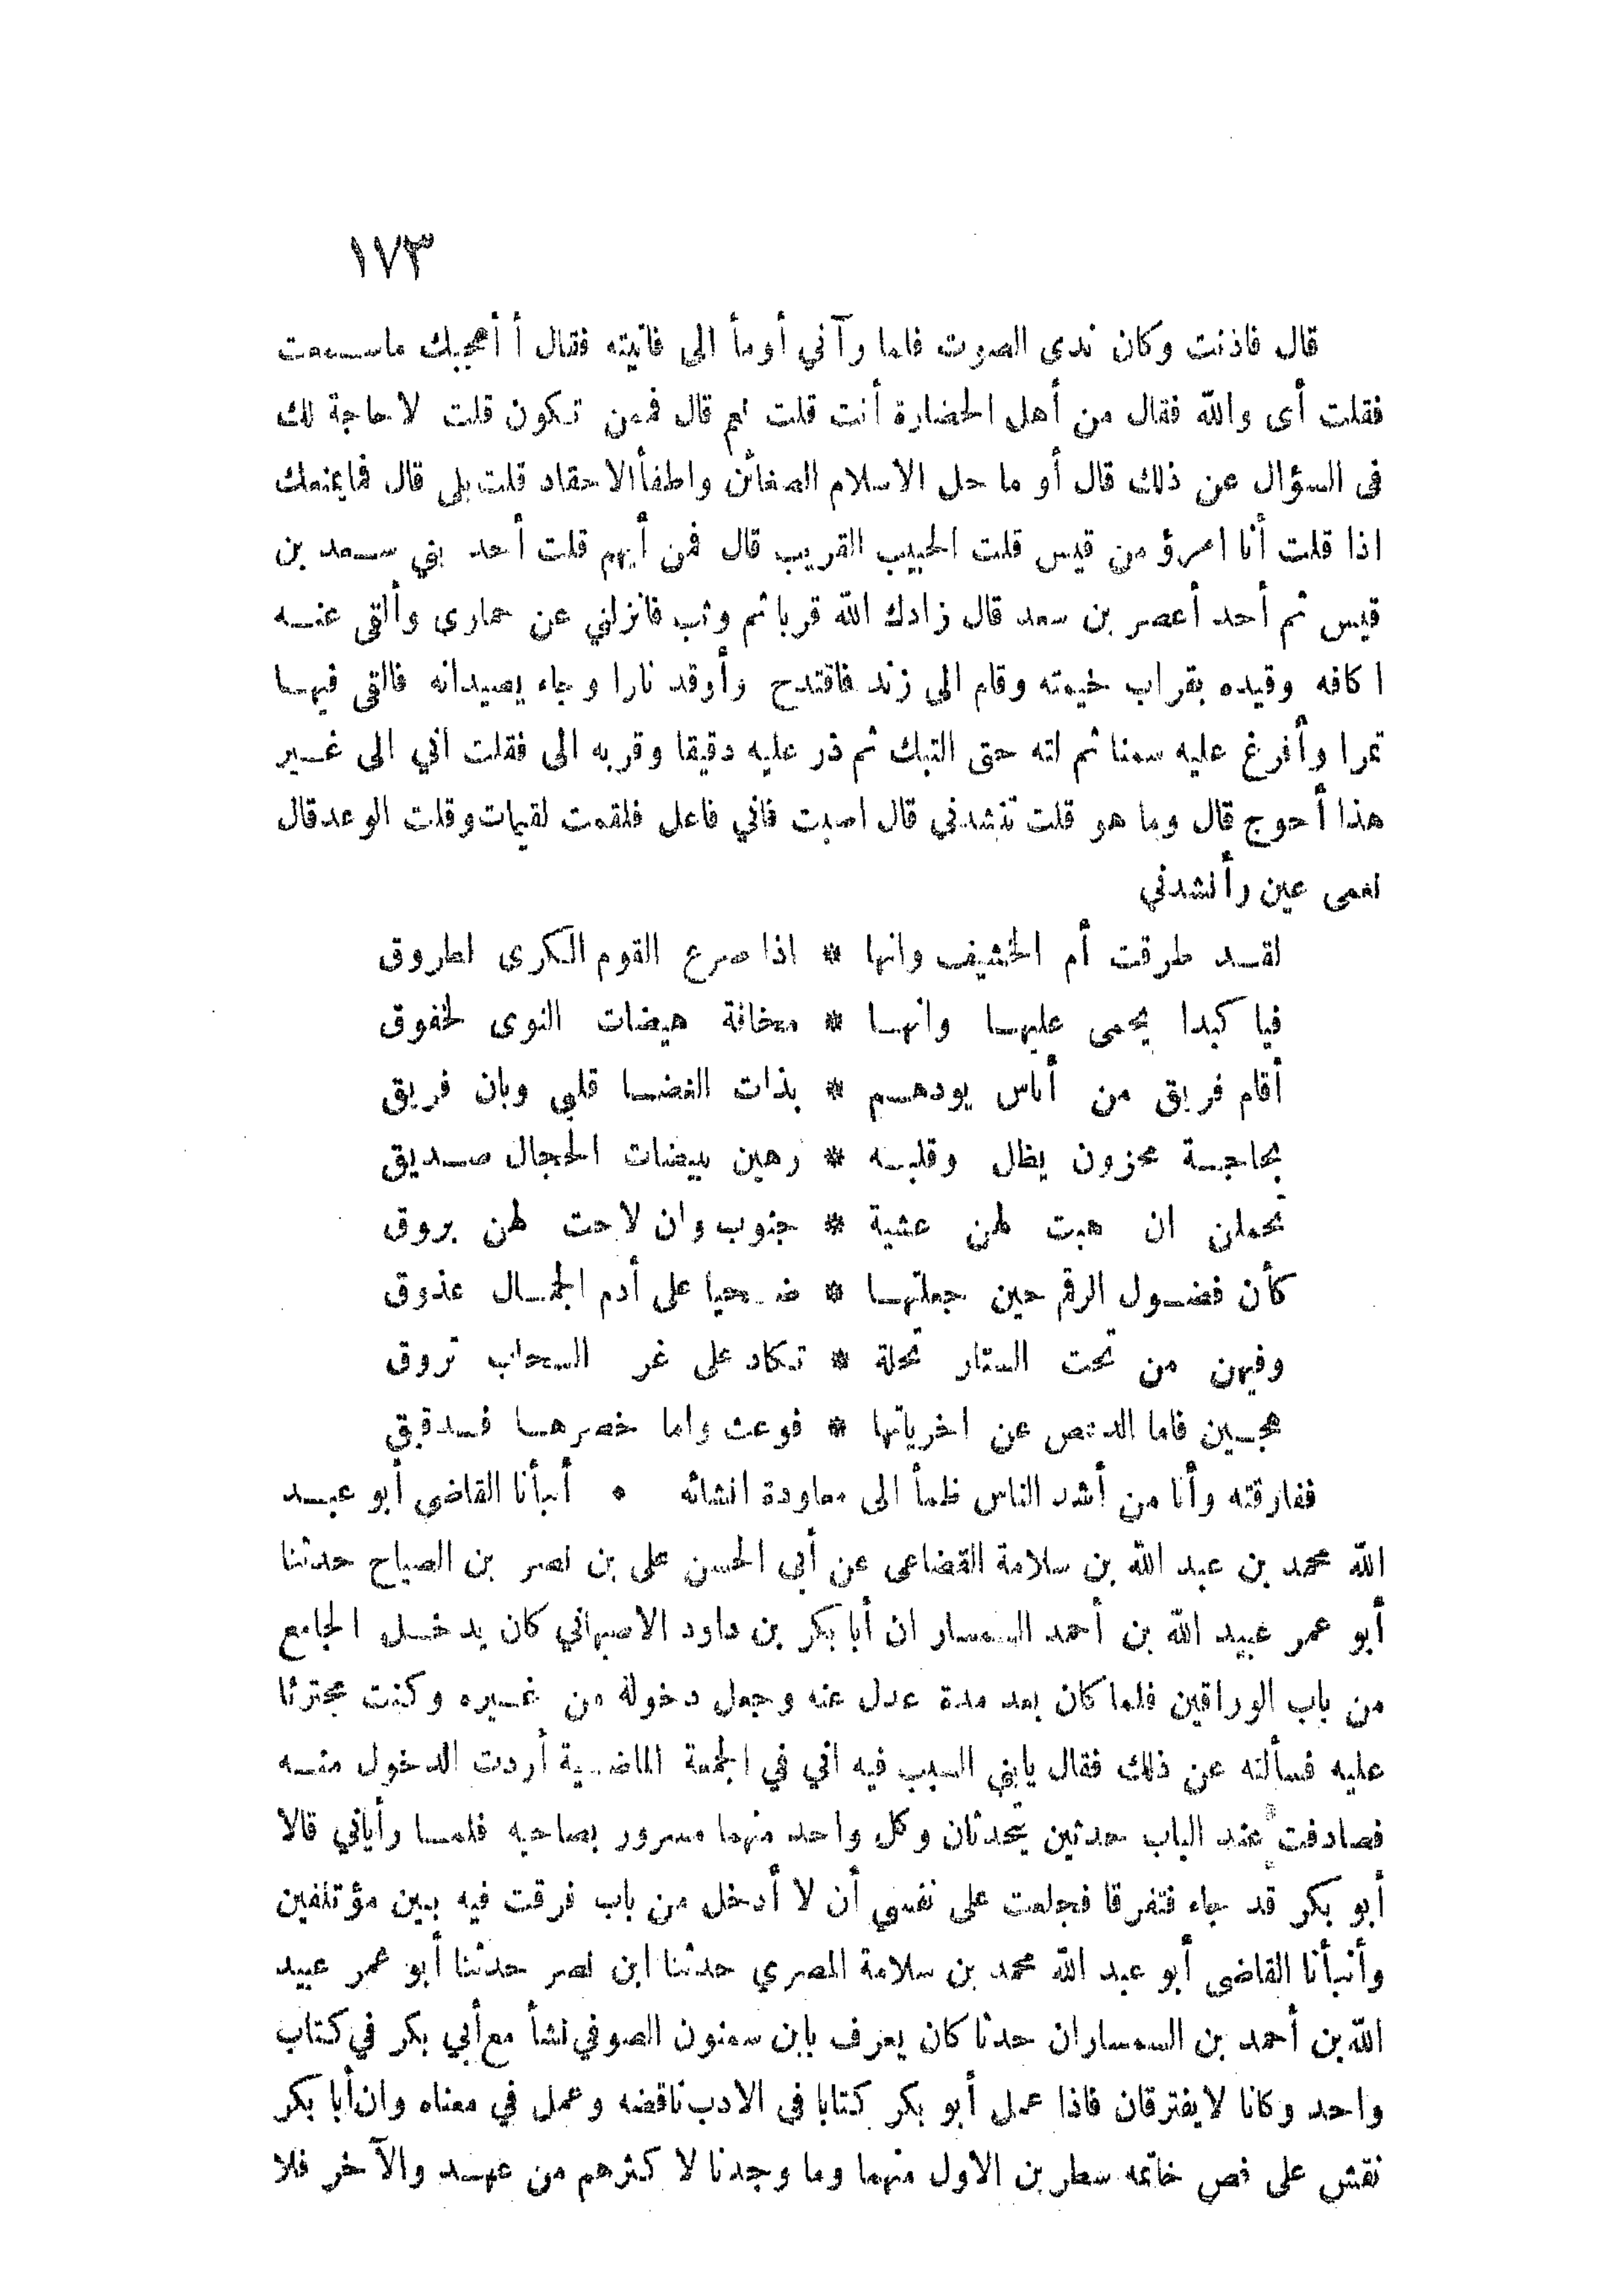 ١٧٣
قال فاذنت وكان ندى الصوت فلما رآني أومأ الى فاتيته فقال أ أعجبك ماسمعت
فقلت أى والله فقال من أهل الحضارة أنت قلت نعم قال فممن تكون قلت لا حاجة لك
فى السؤال عن ذلك قال أو ما حل الاسلام الضغائن واطفأ الاحقاد قلت بلى قال فما يمنعك
اذا قلت أنا امرؤ من قيس قلت الحبيب القريب قال فمن أيهم قلت أحد بني سعد بن
قيس ثم أحد أعصر بن سعد قال زادك الله قربا ثم وثب فانزلني عن حمارى وألقى عنه
اكافه وقيده بقراب خيمته وقام الى زند فاقتدح وأوقد نارا وجاء بصيدانه فالقى فيها
تمرا وأفرغ عليه سمنا ثم لته حتى التبك ثم ذر عليه دقيقا وقربه الى فقلت اني الى غير
هذا أحوج قال وما هو قلت تنشدني قال اصبت فاني فاعل فلقمت لقيمات وقلت الوعد قال
نعمى عين وأنشدني
لقد طرقت أم الخشيف وانها * اذا صرع القوم الكرى لطروق
فيا كبدا يحمى عليها وانها * مخافة هيضات النوى لخفوق
أقام فريق من أناس يودهم * بذات الغضا قلبي وبان فريق
بحاجة محزون يظل وقلبه * رهين ببيضات الحجال صديق
تحملن ان هبت لهن عشية * جنوب وان لاحت لهن بروق
كأن فضول الرقم حين جعلتها * ضحيا على أدم الجمال عذوق
وفيهن من تحت الستار تحلة * تكاد على غر السحاب تروق
هجين فاما الدعص عن اخرياتها * فوعث واما خصرها فدقيق
ففارقته وأنا من أشد الناس ظمأ الى معاودة انشائه • أنبأنا القاضى أبو عبد
الله محمد بن عبد الله بن سلامة القضاعى عن أبي الحسن على بن نصر بن الصباح حدثنا
أبو عمر عبيد الله بن أحمد السمسار ان أبا بكر بن داود الاصبهاني كان يدخل الجامع
من باب الوراقين فلما كان بعد مدة عدل عنه وجعل دخوله من غيره وكنت مجترئا
عليه فسألته عن ذلك فقال يابني السبب فيه اني في الجمعة الماضية أردت الدخول منه
فصادفت عند الباب حدثين يتحدثان وكل واحد منهما مسرور بصاحبه فلما رأياني قالا
أبو بكر قد جاء فتفرقا فجعلت على نفسي أن لا أدخل من باب فرقت فيه بين مؤتلفين
وأنبأنا القاضى أبو عبد الله محمد بن سلامة المصري حدثنا ابن نصر حدثنا أبو عمر عبيد
الله بن أحمد بن السمساران حدثا كان يعرف بابن سمنون الصوفي نشأ مع أبي بكر في كتاب
واحد وكانا لايفترقان فاذا عمل أبو بكر كتابا فى الادب ناقضه وعمل في معناه وان أبا بكر
نقش على فص خاتمه سطرين الاول منهما وما وجدنا لاكثرهم من عهد والآخر فلا